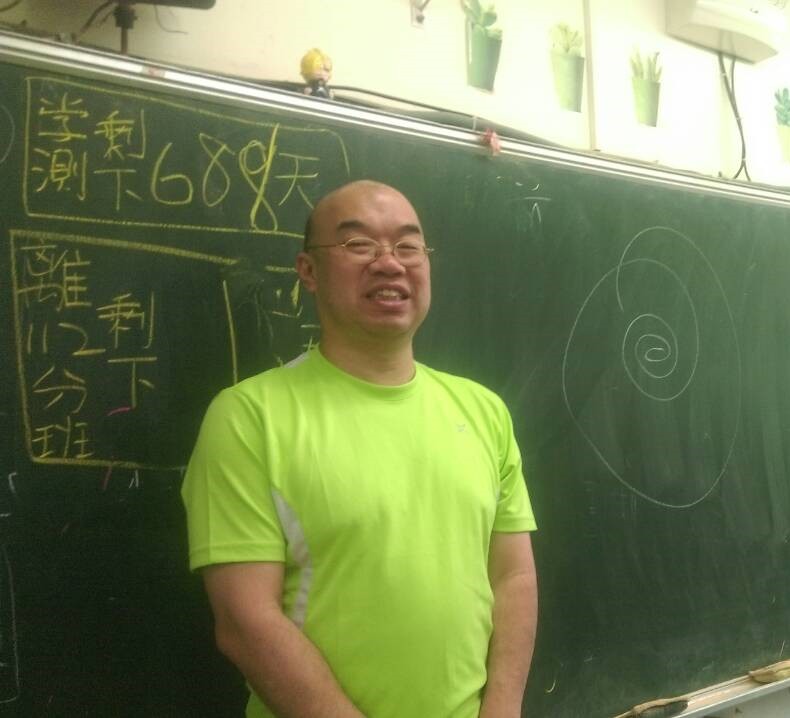 學測剩下689天
離112分班剩下